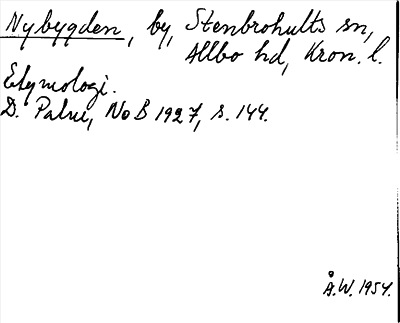 Nybygden, by, Stenbrohults sn,
Allbo hd, Kron. l.
Etymologi.
D. Palm, NoB 1927, s. 144.
Å.W. 1954.